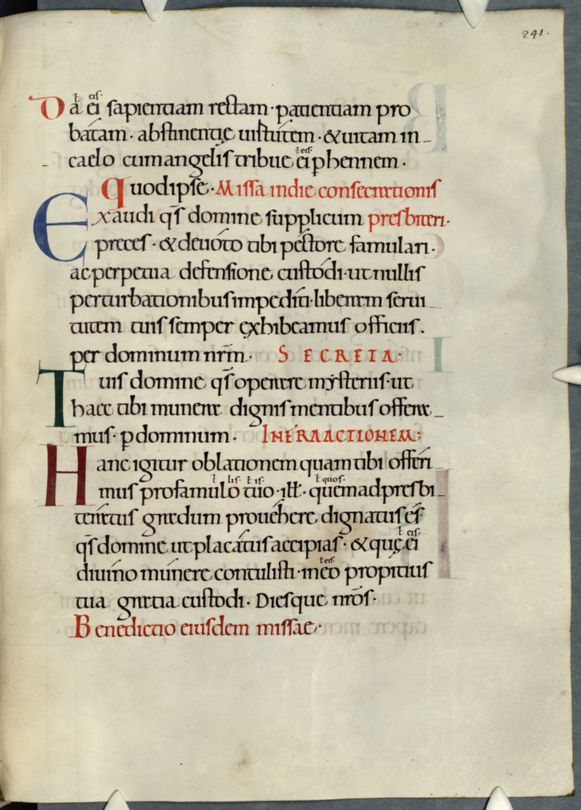 241.
Da ei sapientiam rectam · patientiam pro
batam · abstinentiȩ virtutem · & vitam in
caelo cum angelis tribue ei phennem ·
Quod ipse · Missa in die consecrationis
Exaudi qs domine supplicum presbiteri ·
preces · & devoto tibi pectore famulari ·
ac perpetua defensione custodi · ut nullis
perturbationibus impediti · liberam servi
tutem tuis semper exhibeamus officiis .
per dominum nrm · SECRETA ·
Tuis domine qs operare mysteriis · ut
haec tibi munera dignis mentibus offera
mus · p dominum · INFRA ACTIONEM :
Hanc igitur oblationem quam tibi offeri
mus pro famulo tuo · ill · quem ad presbi
teratus gradum provehere dignatus es
qs domine ut placatus accipias · & quȩ ei
divino munere contulisti · in eo propitius
tua gratia custodi · Diesque nros ·
Benedictio eiusdem missae ·